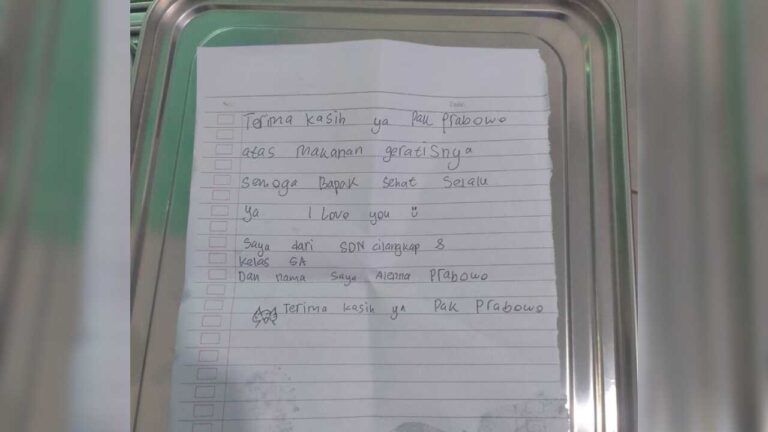 No.:
Date:
Terima kasih ya Pak Prabowo
atas makanan geratisnya
semoga Bapak sehat selalu
ya I Love you
Saya dari SDN cilangkap 8
Kelas 6A
Dan nama saya Alenna Prabowo
Terima kasih ya Pak Prabowo